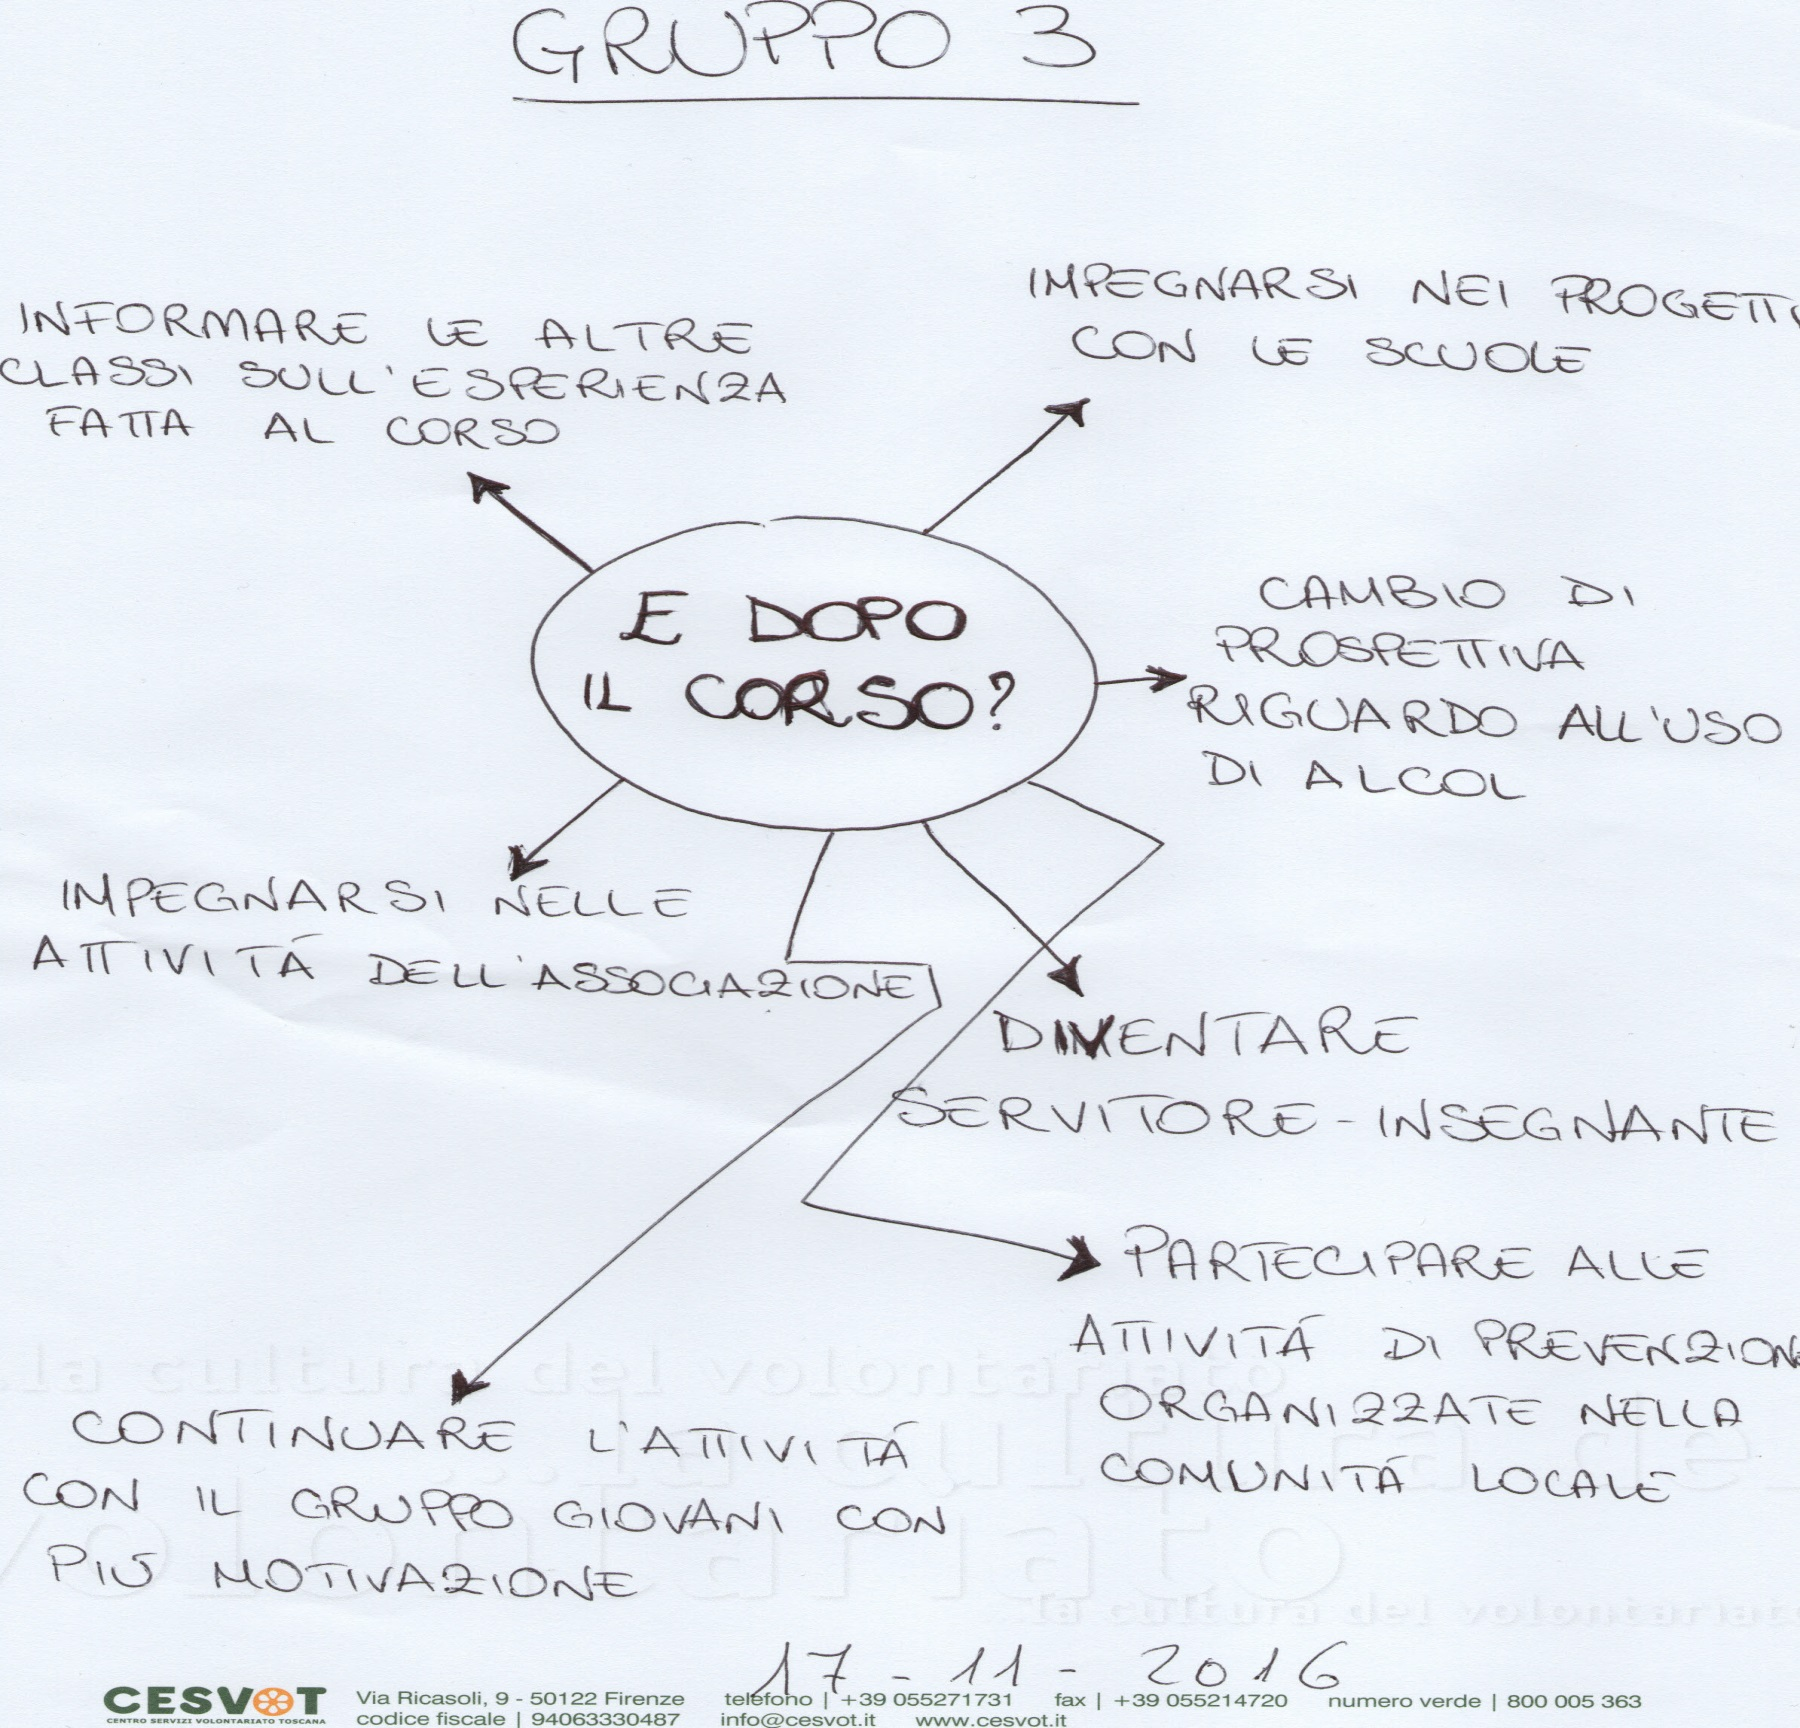 GRUPPO 3
INFORMARE LE ALTRE
CLASSI SULL'ESPERIENZA
FATTA AL CORSO
IMPEGNARSI NEI PROGETTI
CON LE SCUOLE
E DOPO
IL CORSO?
CAMBIO DI
PROSPETTIVA
RIGUARDO ALL'USO
DI ALCOL
IMPEGNARSI NELLE
ATTIVITÁ DELL'ASSOCIAZIONE
DIVENTARE
SERVITORE-INSEGNANTE
PARTECIPARE ALLE
ATTIVITÁ DI PREVENZIONE
ORGANIZZATE NELLA
COMUNITÁ LOCALE
CONTINUARE L'ATTIVITÁ
CON IL GRUPPO GIOVANI CON
PIÚ MOTIVAZIONE
la cultura del volontariato
la cultura del volontariato
17-11-2016
CESVOT
CENTRO SERVIZI VOLONTARIATO TOSCANA
Via Ricasoli, 9 - 50122 Firenze telefono | +39 055271731 fax | +39 055214720 numero verde | 800 005 363
codice fiscale | 94063330487 info@cesvot.it www.cesvot.it